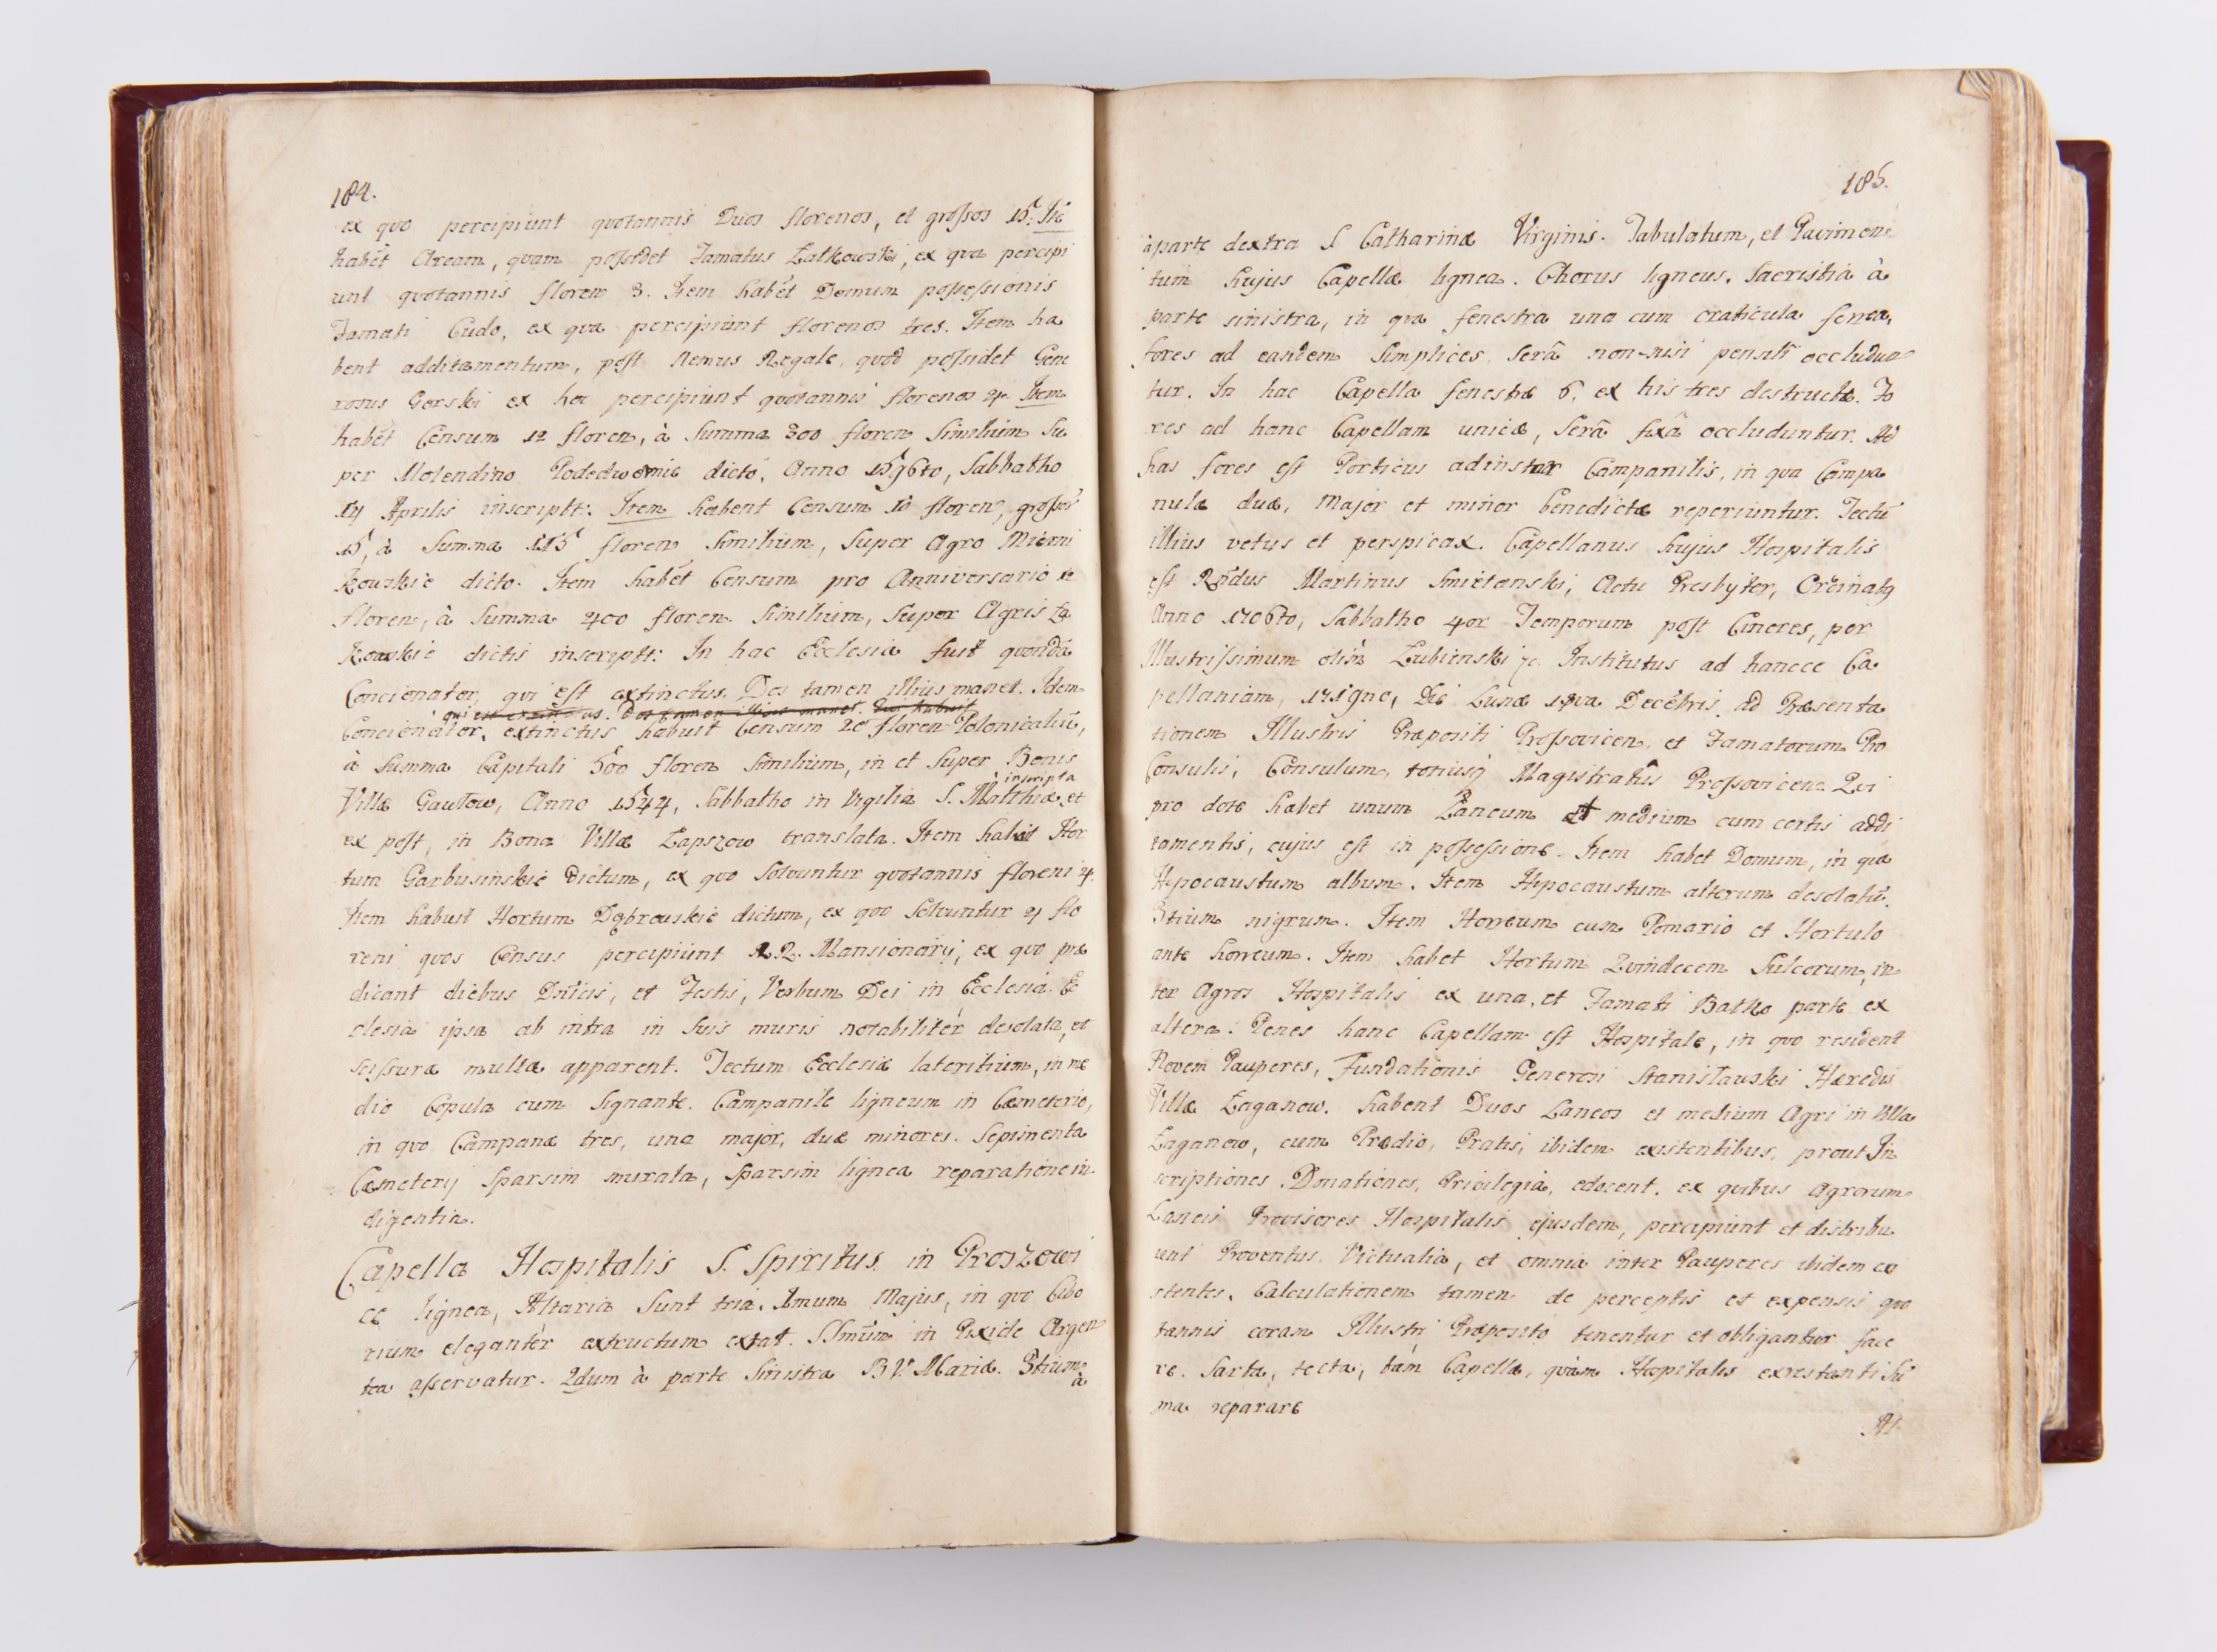 184.
ex quo percipiunt quotannis Duos florenos, et grossos 15. Itē
habēt Aream, quam possidet Famatus Zatkowski, ex qua percipi
unt quotannis floren 3. Item habēt Domum possessionis
Famati Cudo, ex qua percipiunt florenos tres. Item ha
bent additamentum, post Nemus Regale, quod possidet Gene
rosus Gorski ex hoc percipiunt quotannis florenos 4. Item
habēt Censum 12 floren, à Summa 300 floren Similium Su
per Molendino Podedwornie dicto, Anno 1596to, Sabbatho
14 Aprilis inscript: Item habent Censum 10 floren, grossos
15, à Summa 115 floren Similium, Super Agro Mierni
kowskie dicto. Item habēt Censum pro Anniversario 12
floren, à Summa 400 floren Similium, Super Agris
dictis inscript: In hac Ecclesia fuit quondā
Concionator, qui est extinctus. Dos tamen illius manet. Idem
qui est extinctus. Dos tamen illius manet. Hic habuit
Concionator, extinctus habuit Censum 20 floren Polonicaliū,
à Summa Capitali 500 floren Similium, in et Super Bonis
inscripta
Villæ Gautow, Anno 1544, Sabbatho in Vigilia S. Matthiæ, et
ex post, in Bona Villæ Łapszow translata. Item habuit Hor
tum Garbusinskie dictum, ex quo Solvuntur quotannis floreni 4.
Item habuit Hortum Dąbrouskie dictum, ex quo Solvuntur 4 flo
reni quos Census percipiunt RR. Mansionarij, ex quo præ
dicant diebus Dnicis, et Festis, Verbum Dei in Ecclesia. Ec
clesia ipsa ab intra in Suis muris notabilitèr desolata, et
scissuræ multæ apparent. Tectum Ecclesiæ lateritium, in me
dio Copula cum Signante. Campanile ligneum in Cæmeterio,
in quo Campanæ tres, una major, duæ minores. Sepimenta
Cæmeterij Sparsim murata, Sparsim lignea reparatione in
digentia.
Capella Hospitalis S. Spiritus in Proszowi
ce lignea, Altaria Sunt tria. 1mum Majus, in quo Cibo
rium elegantèr extructum extat. SSmūm in Pixide Argen
tea asservatur. 2dum à parte Sinistra B V. Mariæ. 3tium
à
185.
à parte dextra S Catharinæ Virginis. Tabulatum, et Pavimen
tum hujus Capellæ lignea. Chorus ligneus. Sacristia à
parte sinistra, in qua fenestra una cum craticula ferrea,
fores ad eandem Simplices, Serâ non-nisi pensili occludun
tur. In hac Capella fenestræ 6, ex his tres destructæ. Fo
res ad hanc Capellam unicæ, Serâ fixâ occluduntur. Ad
has fores est Porticus adinstar Campanilis, in qua Campa
nulæ duæ, Major et minor benedictæ reperiuntur. Tectū
illius vetus et perspicax. Capellanus hujus Hospitalis
est Rndus Martinus Smietanski, Actu Presbyter, Ordinatq
Anno 1706to, Sabbatho 4or Temporum post Cineres, per
Illustrissimum olim Łubienski &c. Institutus ad hancce Ca
pellaniam, Die Lunæ Decēbris, ad Præsenta
tionem Illustris Præpositi Prossovicen, et Famatorum Pro
Consulis, Consulum, totiusq Magistratûs Prossovicen. Qui
pro dote habet unum Laneum et medium cum certis addi
tamentis, cujus est in possessione. Item habet Domum, in qua
Hypocaustum album. Item Hypocaustum alterum desolatū.
3tium nigrum. Item Horreum cum Pomario et Hortulo
ante horreum. Item habet Hortum Quindecem Sulcorum, in
ter Agros Hospitalis ex una, et Famati Batko parte ex
altera. Penes hanc Capellam est Hospitale, in quo resident
Novem Pauperes, Fundationis Generosi Stanisławski Hæredis
Villæ Łaganow. habent Duos Laneos et medium Agri in Villa
Łaganow, cum Prædio, Pratis, ibidem existentibus, prout In
scriptiones Donationes, Privilegia, edocent. ex quibus Agrorum
Laneis Provisores Hospitalis ejusdem, percipiunt et distribu
unt Proventus. Victualia, et omnia inter Pauperes ibidem exi
stentes. Calculationem tamen de perceptis et expensis quo
tannis coram Illustri Præposito tenentur et obligantur face
re. Sarta, tecta, tàm Capellæ, quàm Hospitalis
ma reparare